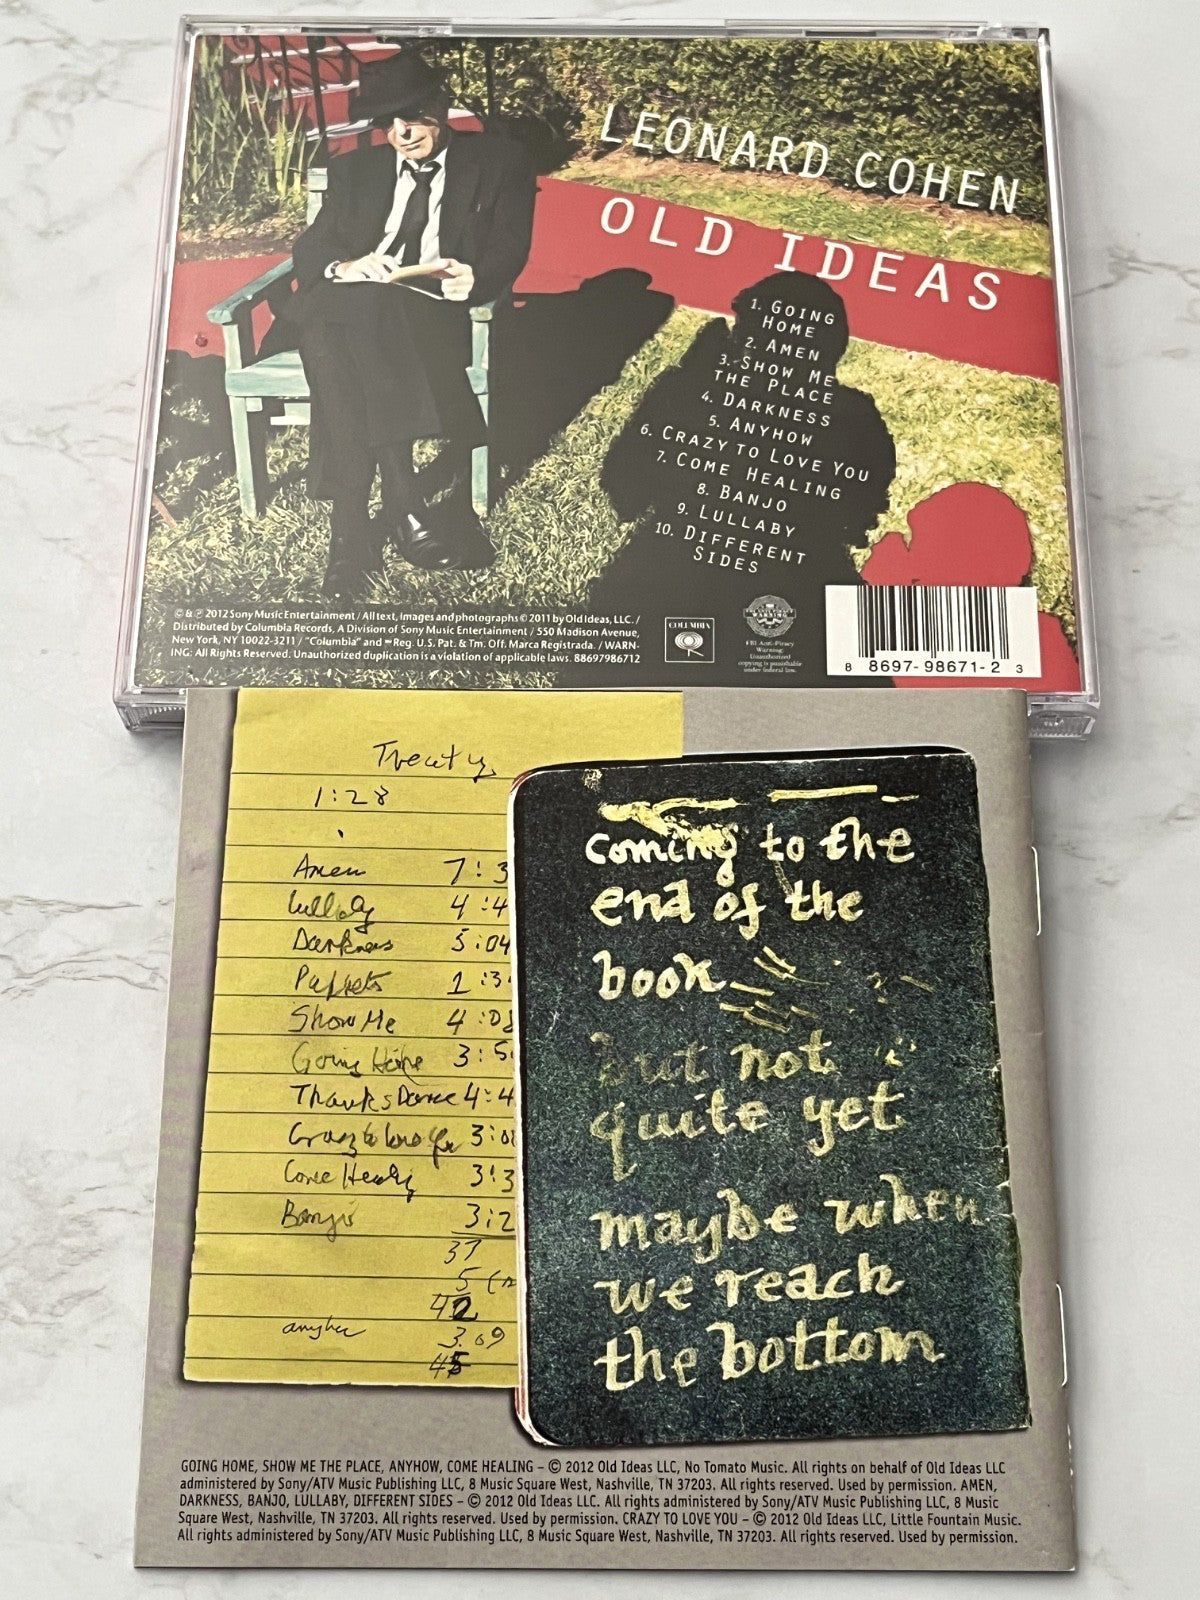 LEONARD COHEN
OLD IDEAS
1. GOING
HOME
2. AMEN
3. SHOW ME
THE PLACE
4. DARKNESS
5. ANYHOW
6. CRAZY TO LOVE YOU
7. COME HEALING
8. BANJO
9. LULLABY
10. DIFFERENT
SIDES
© & ℗ 2012 Sony Music Entertainment / All text, images and photographs © 2011 by Old Ideas, LLC. /
Distributed by Columbia Records, A Division of Sony Music Entertainment / 550 Madison Avenue,
New York, NY 10022-3211 / "Columbia" and Reg. U.S. Pat. & Tm. Off. Marca Registrada. / WARN-
ING: All Rights Reserved. Unauthorized duplication is a violation of applicable laws. 88697986712
COLUMBIA
FBI Anti-Piracy
Warning:
Unauthorized
copying is punishable
under federal law.
8 8697-98671-2 3
1:28
Amen 7:3
Lullaby 4:4
Darkness 5:04
Puppets 1:3
Show Me 4:08
Going Home 3:5
Thanks Dance 4:4
Crazy to love you 3:08
Come Healing 3:3
Banjo 3:2
37
5
42
anyhow 3.09
45
coming to the
end of the
book
but not
quite yet
maybe when
we reach
the bottom
GOING HOME, SHOW ME THE PLACE, ANYHOW, COME HEALING – © 2012 Old Ideas LLC, No Tomato Music. All rights on behalf of Old Ideas LLC
administered by Sony/ATV Music Publishing LLC, 8 Music Square West, Nashville, TN 37203. All rights reserved. Used by permission. AMEN,
DARKNESS, BANJO, LULLABY, DIFFERENT SIDES – © 2012 Old Ideas LLC. All rights administered by Sony/ATV Music Publishing LLC, 8 Music
Square West, Nashville, TN 37203. All rights reserved. Used by permission. CRAZY TO LOVE YOU – © 2012 Old Ideas LLC, Little Fountain Music.
All rights administered by Sony/ATV Music Publishing LLC, 8 Music Square West, Nashville, TN 37203. All rights reserved. Used by permission.